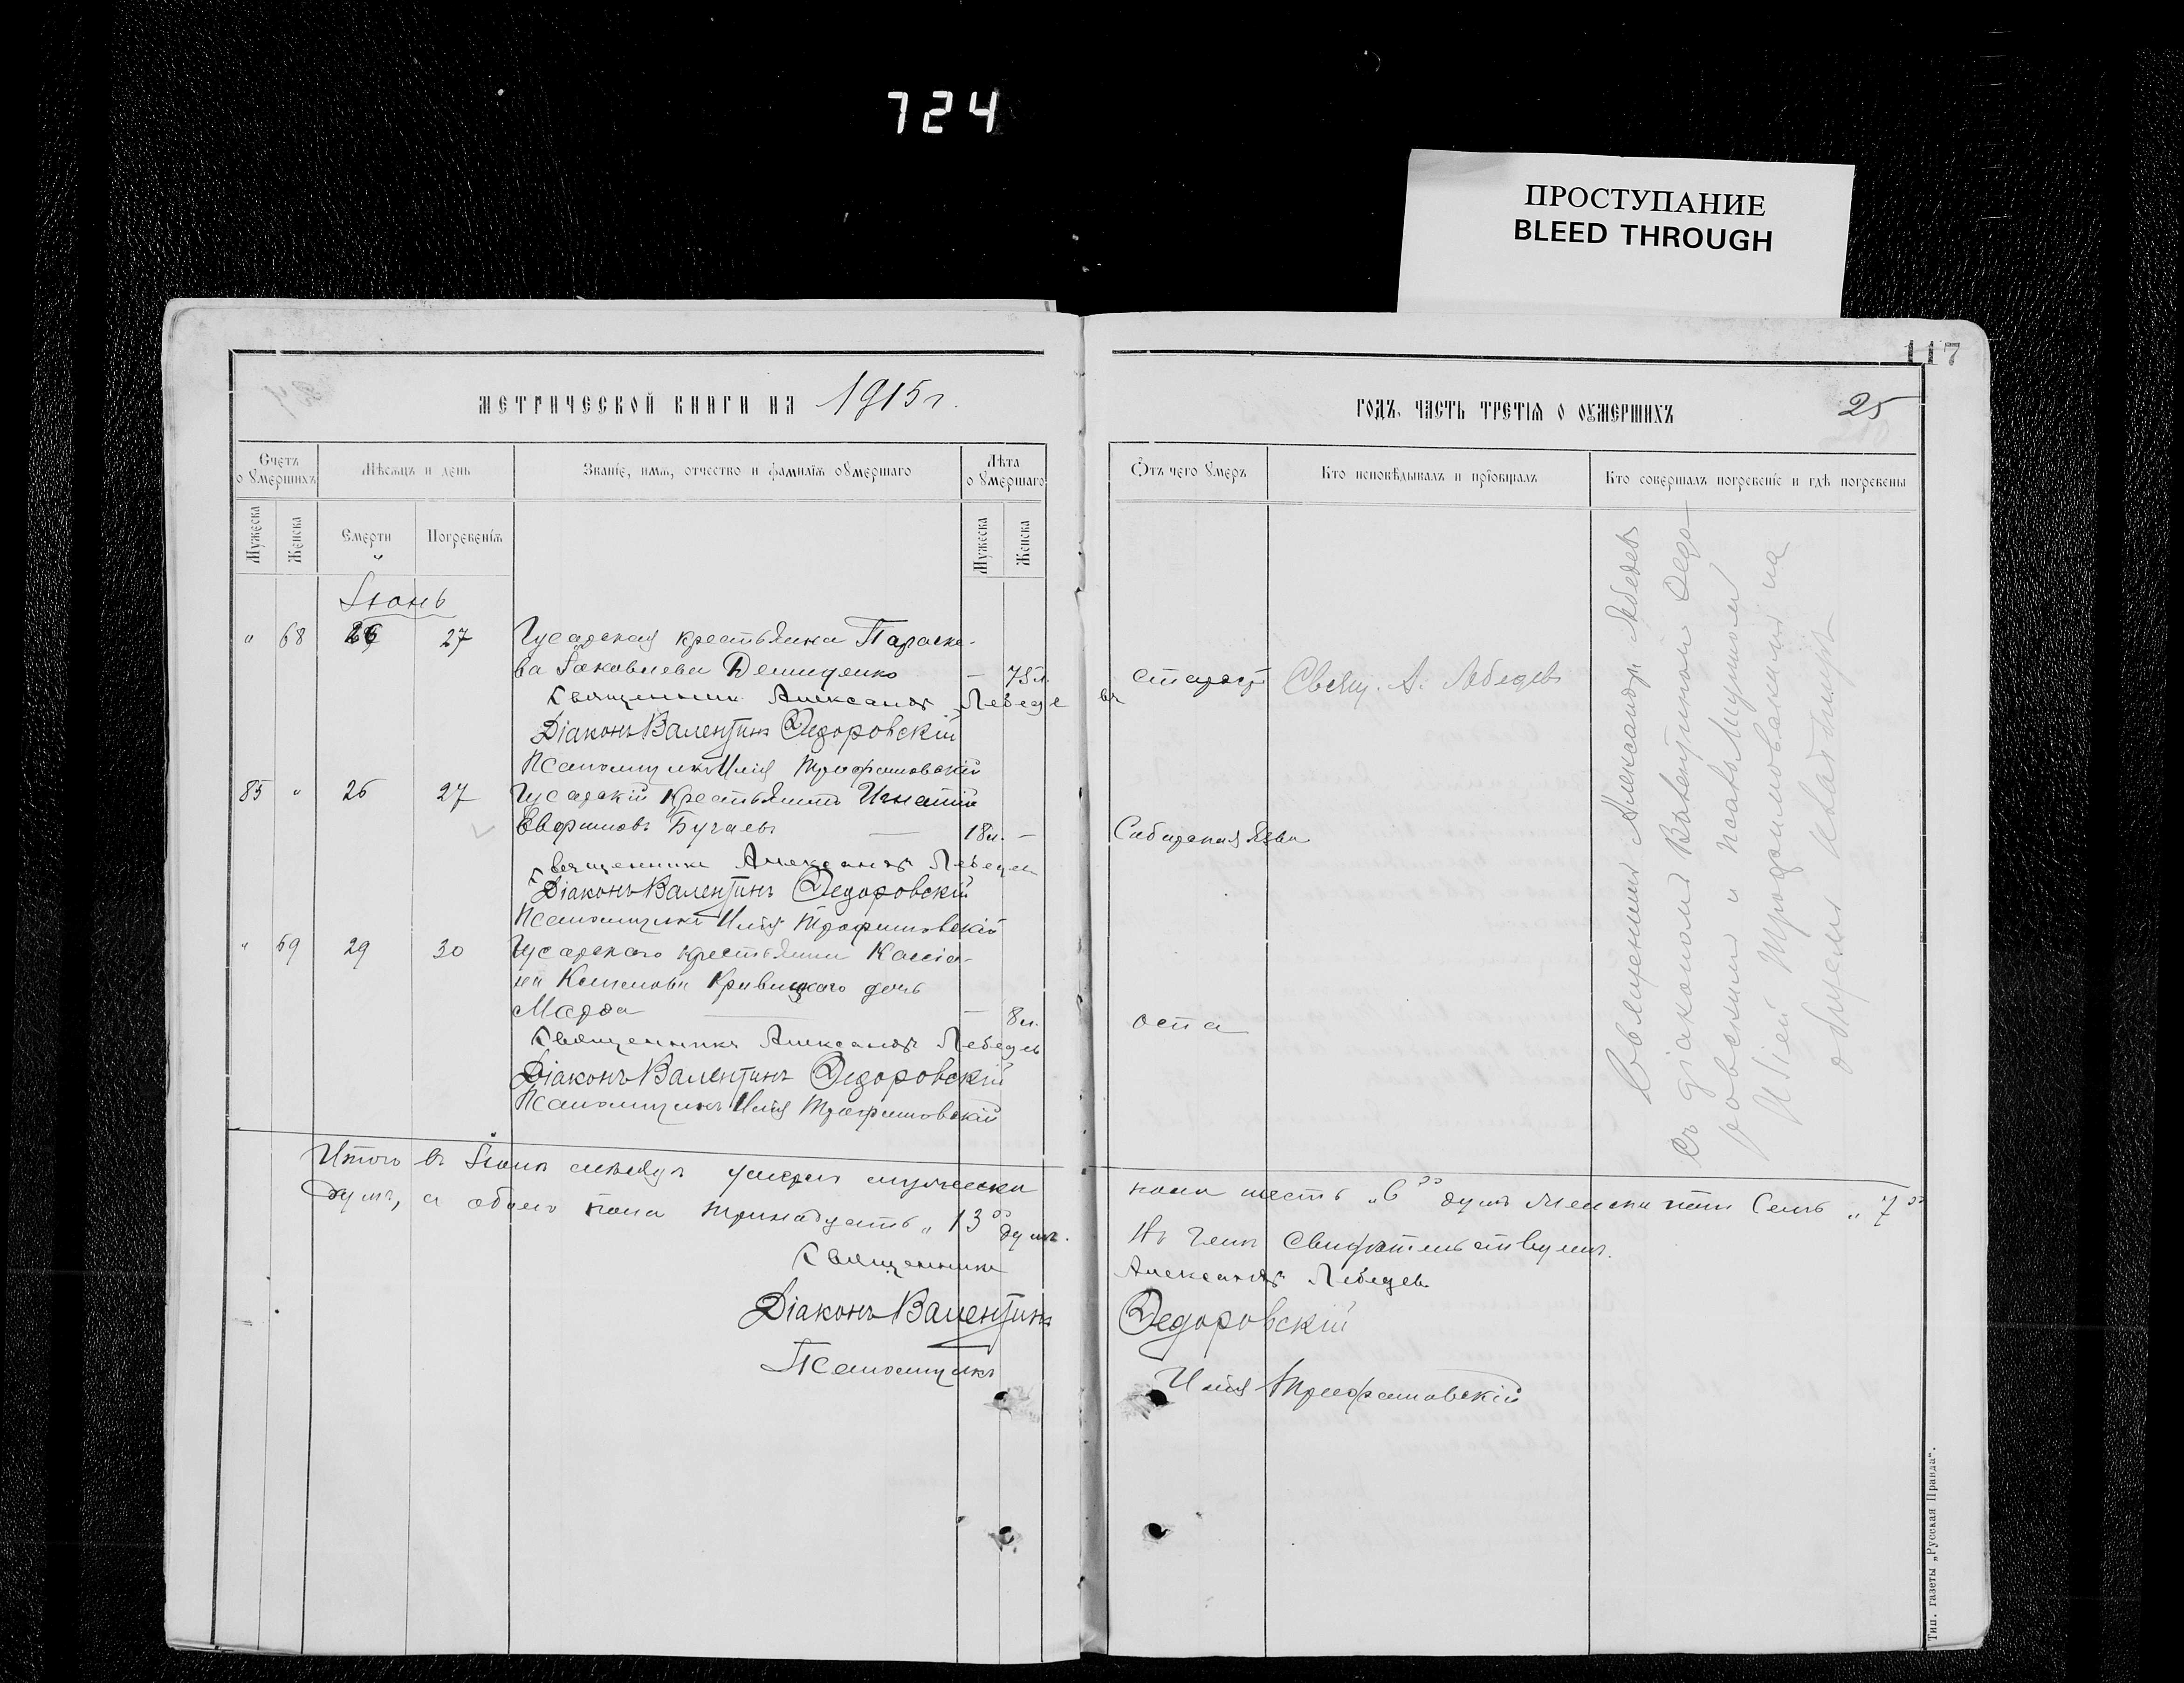 724
ПРОСТУПАНИЕ
BLEED THROUGH
117
МЕТРИЧЕСКОЙ КНИГИ НА 1915 г.
ГОДЪ. ЧАСТЬ ТРЕТІЯ О ОУМЕРШИХЪ
25
Счетъ оумершихъ
Мѣсяцъ и день
Званіе, имя, отчество и фамилія оумершаго
Лѣта оумершаго
Отъ чего умеръ
Кто исповѣдывалъ и пріобщалъ
Кто совершалъ погребеніе и гдѣ погребены
Мужеска
Женска
Смерти
Погребенія
Мужеска
Женска
Іюнь
" 68 26 27 Гусарская крестьянка Параске-
ва Іаковлева Демиденко — 75 л. старост Свящ. А. Лебедевъ
Священникъ Александръ Лебедевъ
Діаконъ Валентинъ Ѳедоровскій
Псаломщикъ Илія Трофимовскій
85 " 26 27 Гусарскій крестьянинъ Игнатій
Евфимовъ Бугаевъ — 18 л. — Сибирская язва
Священникъ Александръ Лебедевъ
Діаконъ Валентинъ Ѳедоровскій
Псаломщикъ Илія Трофимовскій
" 69 29 30 Гусарскаго крестьянина Кассіа-
на Кривицкаго дочь
Марфа — 8 м. оспа
Священникъ Александръ Лебедевъ
Діаконъ Валентинъ Ѳедоровскій
Псаломщикъ Илія Трофимовскій
Священникъ Александръ Лебедевъ
съ діакономъ Валентиномъ Ѳедо-
ровскимъ и псаломщикомъ
Иліей Трофимовскимъ на
общемъ кладбищѣ
Итого въ Іюнѣ мѣсяцѣ умерло мужеска пола шесть „6" душъ женска пола семь „7"
душъ, а обоего пола тринадцать „13" душъ. Въ чемъ свидѣтельствуемъ.
Священникъ Александръ Лебедевъ
Діаконъ Валентинъ Ѳедоровскій
Псаломщикъ Илія Трофимовскій
Тип. газеты „Русская Правда".